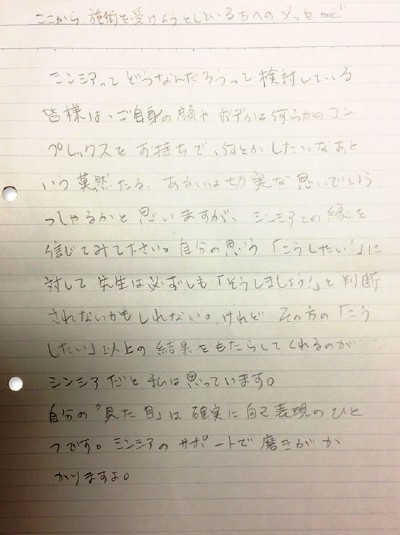 ここから施術を受けようとしている方へのメッセージ
シンシアってどうなんだろうって検討している
皆様は、ご自身の顔やボディに何らかのコン
プレックスをお持ちで、何とかしたいなあと
いう漠然たる、あるいは切実な思いでいらっ
しゃるかと思いますが、シンシアとの縁を
信じてみて下さい。自分の思う「こうしたい！」に
対して先生は必ずしも「そうしましょう！」と判断
されないかもしれない。けれどその方の「こう
したい」以上の結果をもたらしてくれるのが
シンシアだと私は思っています。
自分の“見た目”は確実に自己表現のひと
つです。シンシアのサポートで磨きがか
かりますよ。